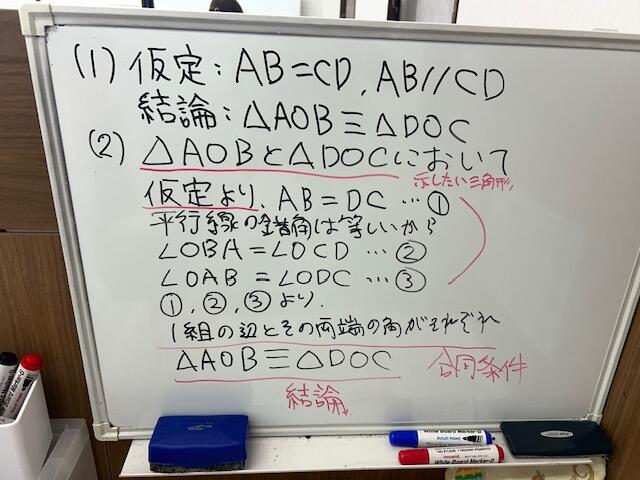 (1) 仮定：AB=CD, AB//CD
結論：△AOB≡△DOC
(2) △AOBと△DOCにおいて
示したい三角形
仮定より、AB=DC …①
平行線の錯角は等しいから
∠OBA=∠OCD …②
∠OAB=∠ODC …③
①,②,③より、
1組の辺とその両端の角がそれぞれ
△AOB≡△DOC
合同条件
結論
White Board Marker-D
BULLET POINT
White Board Marker-D